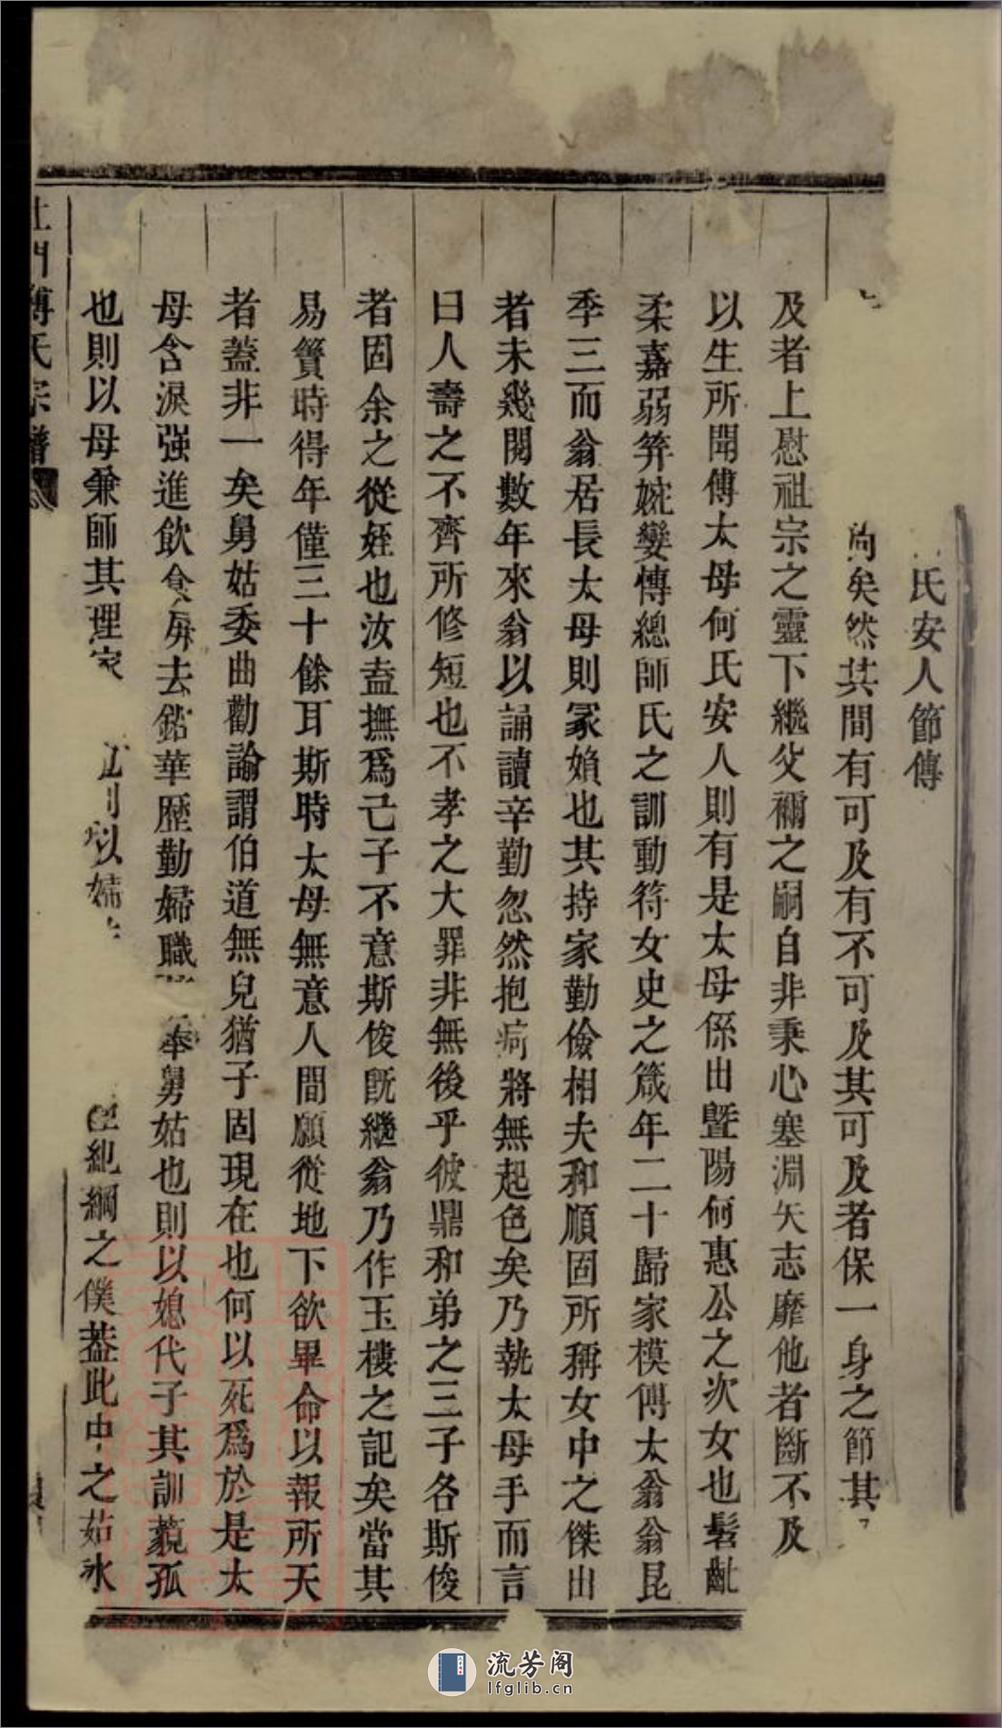 氏安人節傳
矣然其間有可及有不可及其可及者保一身之節其
及者上慰祖宗之靈下繼父禰之嗣自非秉心塞淵矢志靡他者斷不及
以生所聞傳太母何氏安人則有是太母係出暨陽何惠公之次女也髫齔
柔嘉弱笄婉孌慱總師氏之訓動符女史之箴年二十歸家模傅太翁翁昆
季三而翁居長太母則冡嬪也其持家勤儉相夫和順固所稱女中之傑出
者未幾閱數年來翁以誦讀辛勤忽然抱病將無起色矣乃執太母手而言
曰人壽之不齊所修短也不孝之大罪非無後乎彼鼎和弟之三子各斯俊
者固余之從姪也汝盍撫爲己子不意斯俊旣繼翁乃作玉樓之記矣當其
易簀時得年僅三十餘耳斯時太母無意人間願從地下欲畢命以報所天
者蓋非一矣舅姑委曲勸諭謂伯道無兒猶子固現在也何以死爲於是太
母含淚强進飲食屏去鉛華歷勤婦職 奉舅姑也則以媳代子其訓藐孤
也則以母兼師其理家 則以 紀綱之僕葢此中之茹氷
傅氏宗譜
流芳阁
lfglib.cn